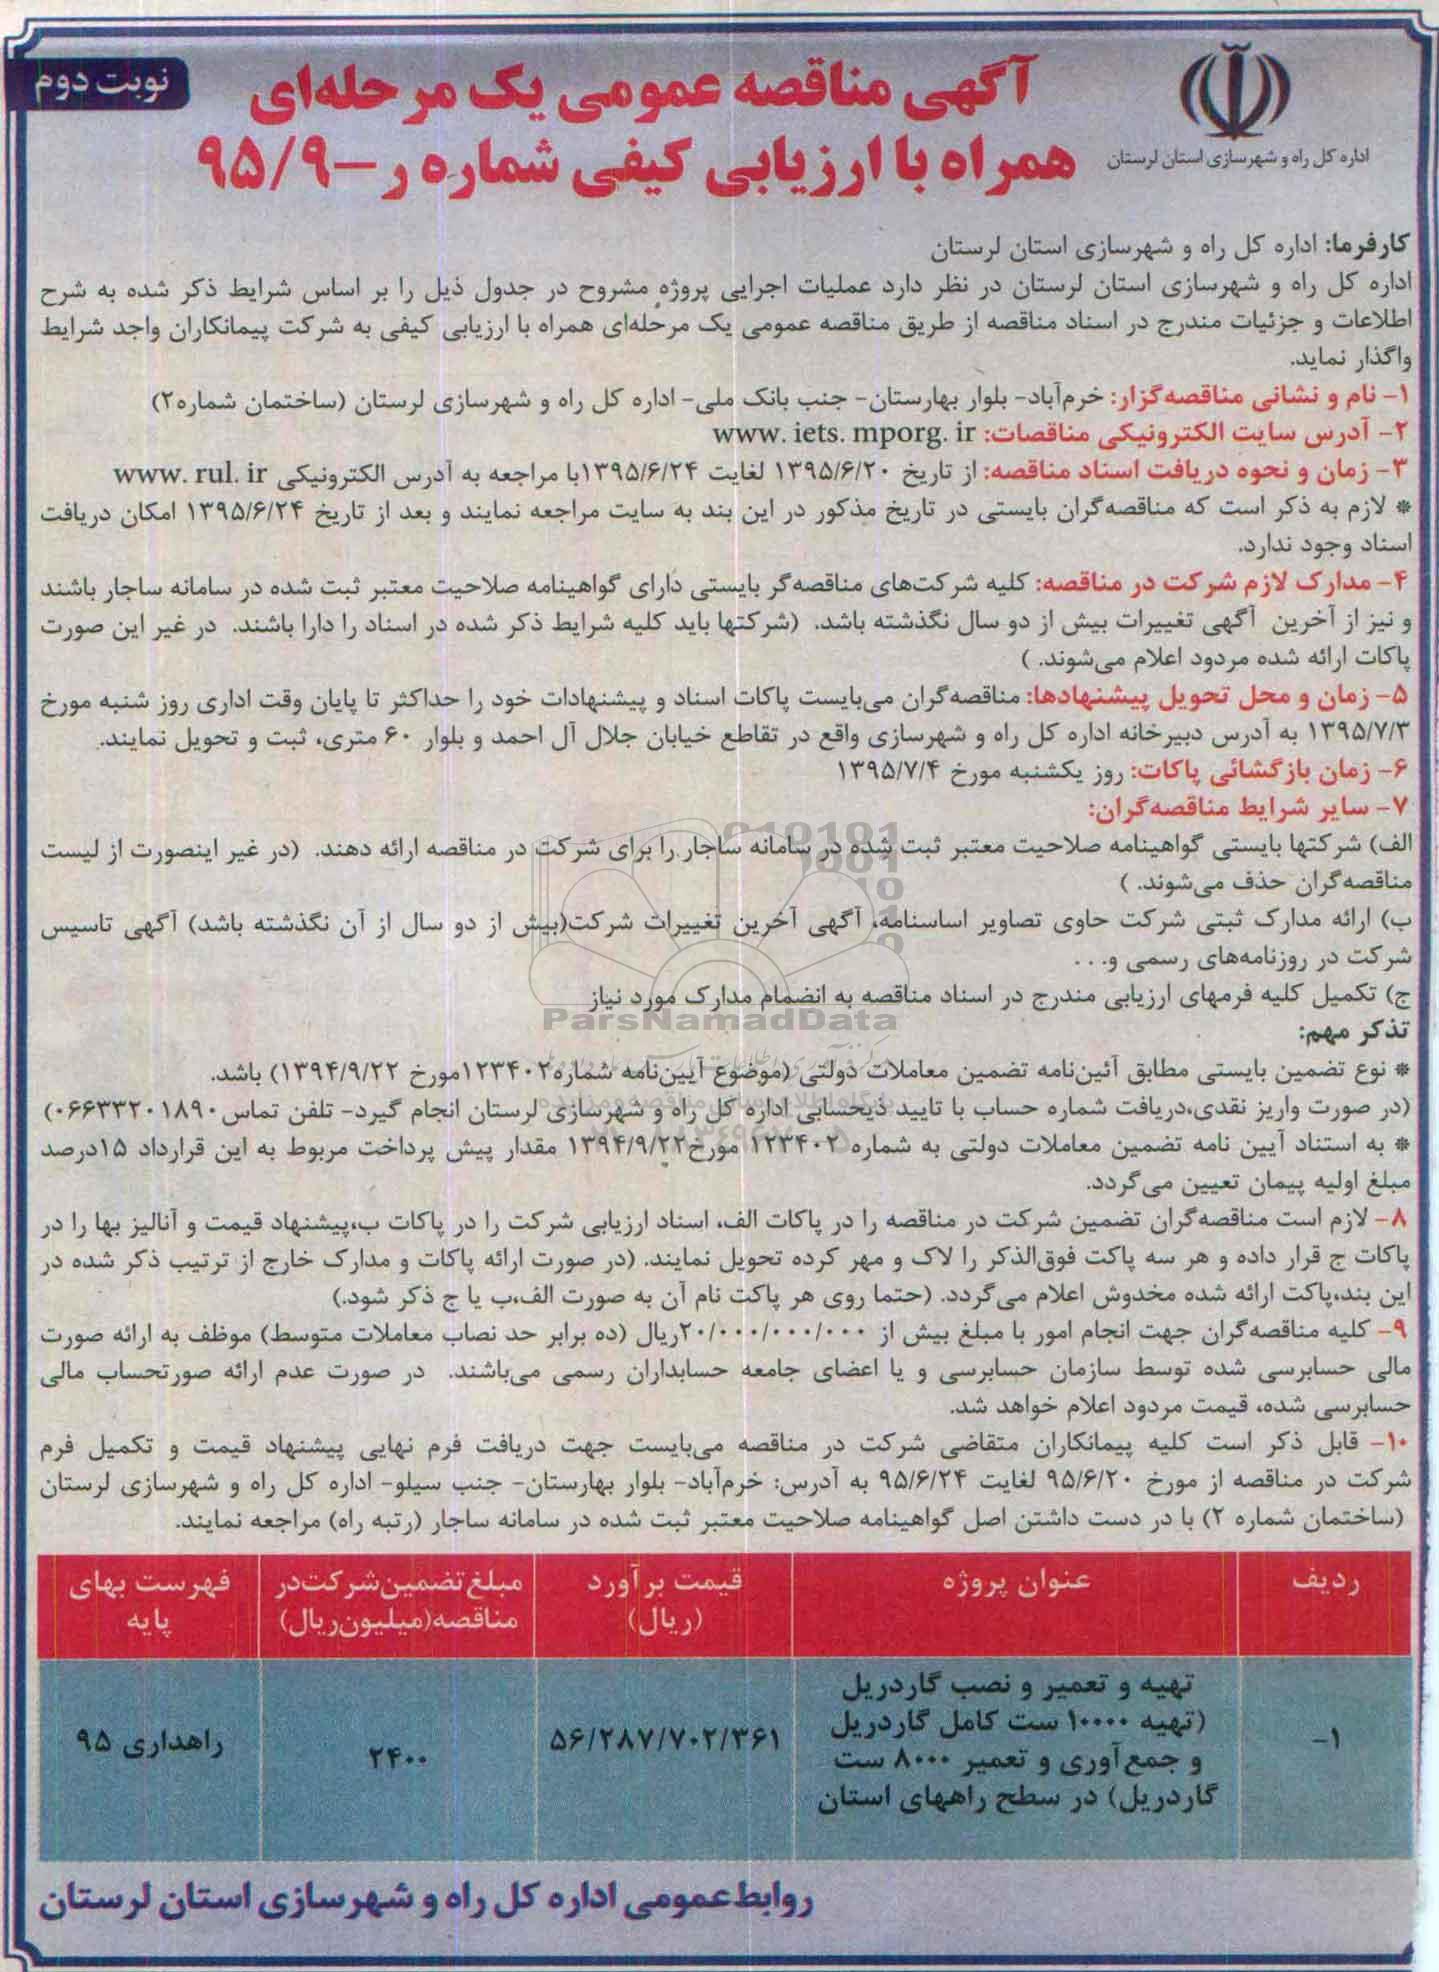 نوبت دوم
آگهی مناقصه عمومی یک مرحله‌ای
همراه با ارزیابی کیفی شماره ر-۹۵/۹
اداره کل راه و شهرسازی استان لرستان
کارفرما: اداره کل راه و شهرسازی استان لرستان
اداره کل راه و شهرسازی استان لرستان در نظر دارد عملیات اجرایی پروژه مشروح در جدول ذیل را بر اساس شرایط ذکر شده به شرح
اطلاعات و جزئیات مندرج در اسناد مناقصه از طریق مناقصه عمومی یک مرحله‌ای همراه با ارزیابی کیفی به شرکت پیمانکاران واجد شرایط
واگذار نماید.
۱- نام و نشانی مناقصه‌گزار: خرم‌آباد- بلوار بهارستان- جنب بانک ملی- اداره کل راه و شهرسازی لرستان (ساختمان شماره۲)
۲- آدرس سایت الکترونیکی مناقصات: www. iets. mporg. ir
۳- زمان و نحوه دریافت اسناد مناقصه: از تاریخ ۱۳۹۵/۶/۲۰ لغایت ۱۳۹۵/۶/۲۴با مراجعه به آدرس الکترونیکی www. rul. ir
* لازم به ذکر است که مناقصه‌گران بایستی در تاریخ مذکور در این بند به سایت مراجعه نمایند و بعد از تاریخ ۱۳۹۵/۶/۲۴ امکان دریافت
اسناد وجود ندارد.
۴- مدارک لازم شرکت در مناقصه: کلیه شرکت‌های مناقصه‌گر بایستی دارای گواهینامه صلاحیت معتبر ثبت شده در سامانه ساجار باشند
و نیز از آخرین آگهی تغییرات بیش از دو سال نگذشته باشد. (شرکتها باید کلیه شرایط ذکر شده در اسناد را دارا باشند. در غیر این صورت
پاکات ارائه شده مردود اعلام می‌شوند. )
۵- زمان و محل تحویل پیشنهادها: مناقصه‌گران می‌بایست پاکات اسناد و پیشنهادات خود را حداکثر تا پایان وقت اداری روز شنبه مورخ
۱۳۹۵/۷/۳ به آدرس دبیرخانه اداره کل راه و شهرسازی واقع در تقاطع خیابان جلال آل احمد و بلوار ۶۰ متری، ثبت و تحویل نمایند.
۶- زمان بازگشائی پاکات: روز یکشنبه مورخ ۱۳۹۵/۷/۴
۷- سایر شرایط مناقصه‌گران:
الف) شرکتها بایستی گواهینامه صلاحیت معتبر ثبت شده در سامانه ساجار را برای شرکت در مناقصه ارائه دهند. (در غیر اینصورت از لیست
مناقصه‌گران حذف می‌شوند. )
ب) ارائه مدارک ثبتی شرکت حاوی تصاویر اساسنامه، آگهی آخرین تغییرات شرکت(بیش از دو سال از آن نگذشته باشد) آگهی تاسیس
شرکت در روزنامه‌های رسمی و. . .
ج) تکمیل کلیه فرمهای ارزیابی مندرج در اسناد مناقصه به انضمام مدارک مورد نیاز
ParsNamadData
تذکر مهم:
* نوع تضمین بایستی مطابق آئین‌نامه تضمین معاملات دولتی (موضوع آیین‌نامه شماره۱۲۳۴۰۲مورخ ۱۳۹۴/۹/۲۲) باشد.
(در صورت واریز نقدی،دریافت شماره حساب با تایید ذیحسابی اداره کل راه و شهرسازی لرستان انجام گیرد- تلفن تماس۰۶۶۳۳۲۰۱۸۹۰)
* به استناد آیین نامه تضمین معاملات دولتی به شماره ۱۲۳۴۰۲ مورخ۱۳۹۴/۹/۲۲ مقدار پیش پرداخت مربوط به این قرارداد ۱۵درصد
مبلغ اولیه پیمان تعیین می‌گردد.
۸- لازم است مناقصه‌گران تضمین شرکت در مناقصه را در پاکات الف، اسناد ارزیابی شرکت را در پاکات ب،پیشنهاد قیمت و آنالیز بها را در
پاکات ج قرار داده و هر سه پاکت فوق‌الذکر را لاک و مهر کرده تحویل نمایند. (در صورت ارائه پاکات و مدارک خارج از ترتیب ذکر شده در
این بند،پاکت ارائه شده مخدوش اعلام می‌گردد. (حتما روی هر پاکت نام آن به صورت الف،ب یا ج ذکر شود.)
۹- کلیه مناقصه‌گران جهت انجام امور با مبلغ بیش از ۲۰/۰۰۰/۰۰۰/۰۰۰ریال (ده برابر حد نصاب معاملات متوسط) موظف به ارائه صورت
مالی حسابرسی شده توسط سازمان حسابرسی و یا اعضای جامعه حسابداران رسمی می‌باشند. در صورت عدم ارائه صورتحساب مالی
حسابرسی شده، قیمت مردود اعلام خواهد شد.
۱۰- قابل ذکر است کلیه پیمانکاران متقاضی شرکت در مناقصه می‌بایست جهت دریافت فرم نهایی پیشنهاد قیمت و تکمیل فرم
شرکت در مناقصه از مورخ ۹۵/۶/۲۰ لغایت ۹۵/۶/۲۴ به آدرس: خرم‌آباد- بلوار بهارستان- جنب سیلو- اداره کل راه و شهرسازی لرستان
(ساختمان شماره ۲) با در دست داشتن اصل گواهینامه صلاحیت معتبر ثبت شده در سامانه ساجار (رتبه راه) مراجعه نمایند.
ردیف
عنوان پروژه
قیمت برآورد
(ریال)
مبلغ تضمین شرکت در
مناقصه(میلیون ریال)
فهرست بهای
پایه
۱-
تهیه و تعمیر و نصب گاردریل
(تهیه ۱۰۰۰۰ ست کامل گاردریل
و جمع‌آوری و تعمیر ۸۰۰۰ ست
گاردریل) در سطح راههای استان
۵۶/۲۸۷/۷۰۲/۳۶۱
۲۴۰۰
راهداری ۹۵
روابط‌عمومی اداره کل راه و شهرسازی استان لرستان